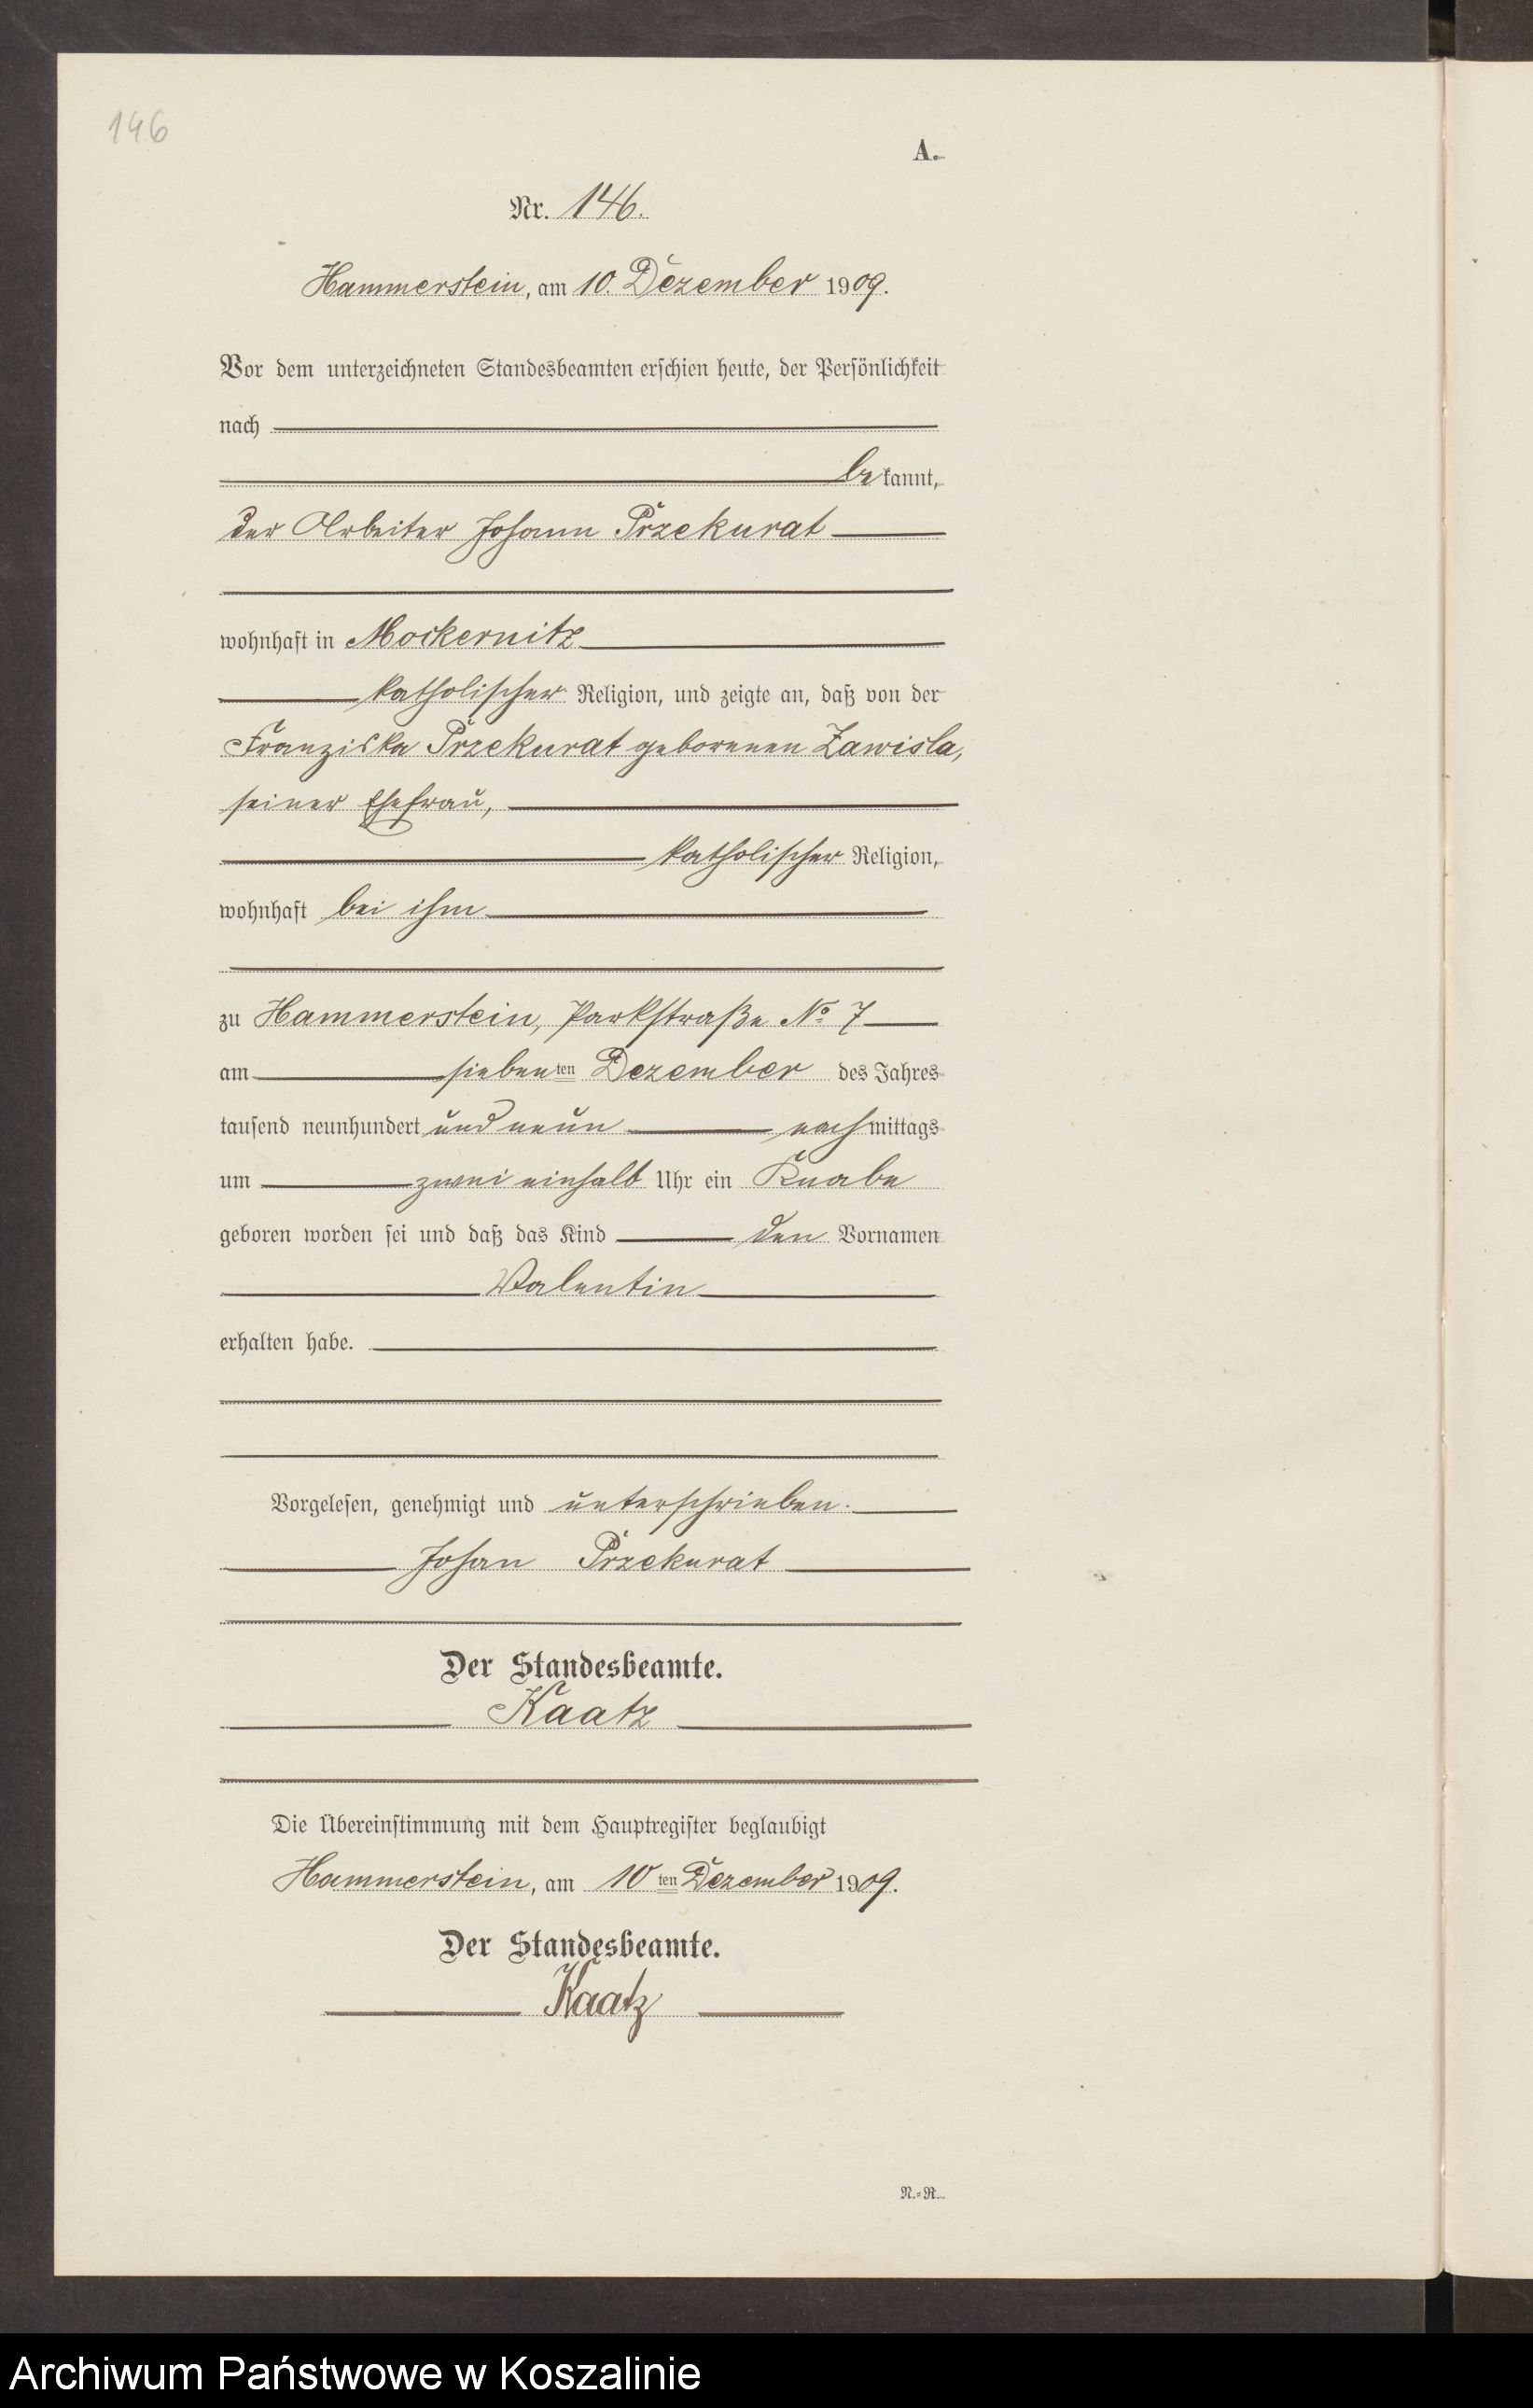 146
A.
Nr. 146.
Hammerstein, am 10. Dezember 1909.
Vor dem unterzeichneten Standesbeamten erschien heute, der Persönlichkeit
nach
bekannt,
der Arbeiter Johann Przekurat
wohnhaft in Mockernitz
katholischer Religion, und zeigte an, daß von der
Franziska Przekurat geborenen Zawisla,
seiner Ehefrau,
katholischer Religion,
wohnhaft bei ihm
zu Hammerstein, Parkstraße No 7
am siebenten Dezember des Jahres
tausend neunhundert und neun nachmittags
um zwei einhalb Uhr ein Knabe
geboren worden sei und daß das Kind den Vornamen
Valentin
erhalten habe.
Vorgelesen, genehmigt und unterschrieben.
Johan Przekurat
Der Standesbeamte.
Kaatz
Die Übereinstimmung mit dem Hauptregister beglaubigt
Hammerstein, am 10ten Dezember 1909.
Der Standesbeamte.
Kaatz
N.=R.
Archiwum Państwowe w Koszalinie